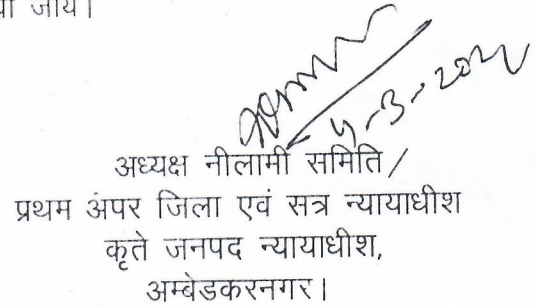 जाय।
अध्यक्ष नीलामी समिति/
प्रथम अपर जिला एवं सत्र न्यायाधीश
कृते जनपद न्यायाधीश,
अम्बेडकरनगर।